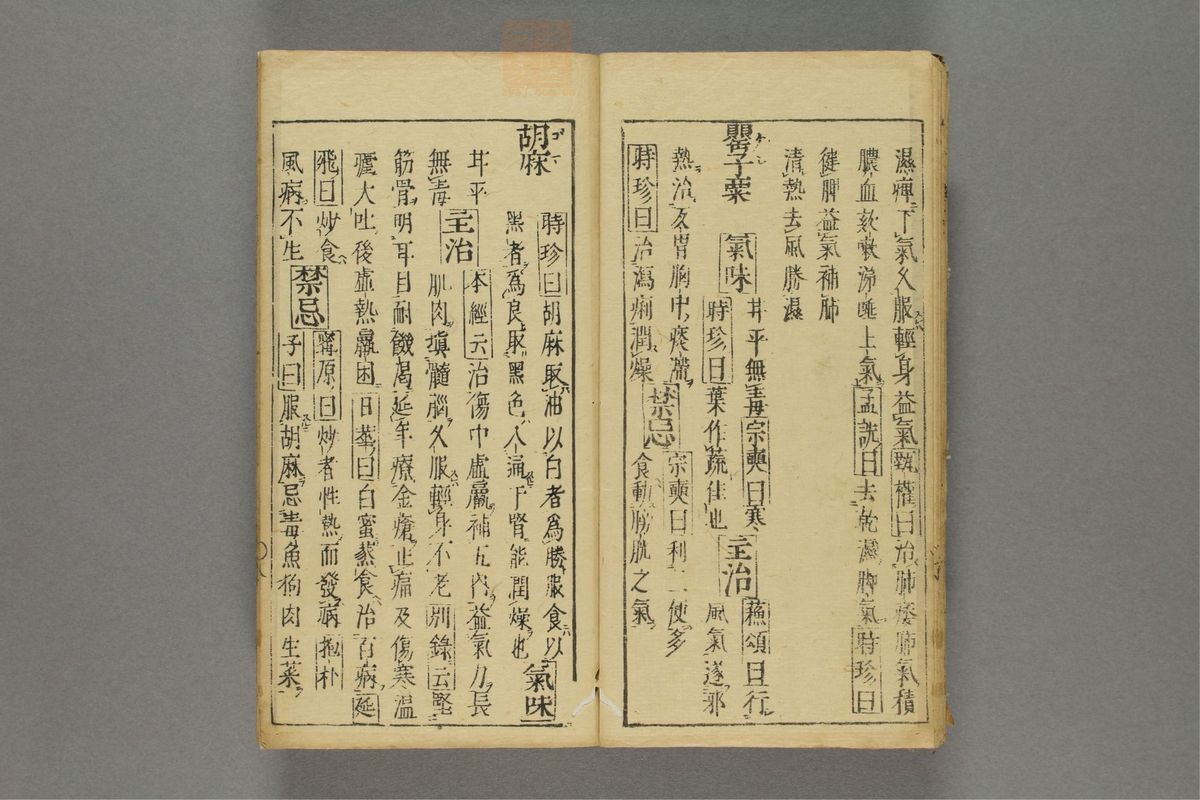 濕痺下氣久服輕身益氣甄權曰治肺痿肺氣積
膿血欬嗽涕唾上氣孟詵曰去乾濕脚氣時珍曰
健脾益氣補肺
清熱去風勝濕
罌子粟 氣味 甘平無毒宗奭曰寒 主治 蘇頌曰行
時珍曰葉作蔬佳也 風氣逐邪
熱治反胃胸中痰滯 宗奭曰利二便多
時珍曰治瀉痢潤燥 禁忌 食動膀胱之氣
胡麻 時珍曰胡麻取油以白者爲勝服食以
黑者爲良取黑色入通于腎能潤燥也 氣味
甘平 主治 本經云治傷中虛羸補五內益氣力長
無毒 肌肉塡髓腦久服輕身不老別錄云堅
筋骨明耳目耐饑渴延年療金瘡止痛及傷寒溫
瘧大吐後虛熱羸困日華曰白蜜蒸食治百病延
飛曰炒食 禁忌 甯原曰炒者性熱而發病抱朴
風病不生 子曰服胡麻忌毒魚狗肉生菜